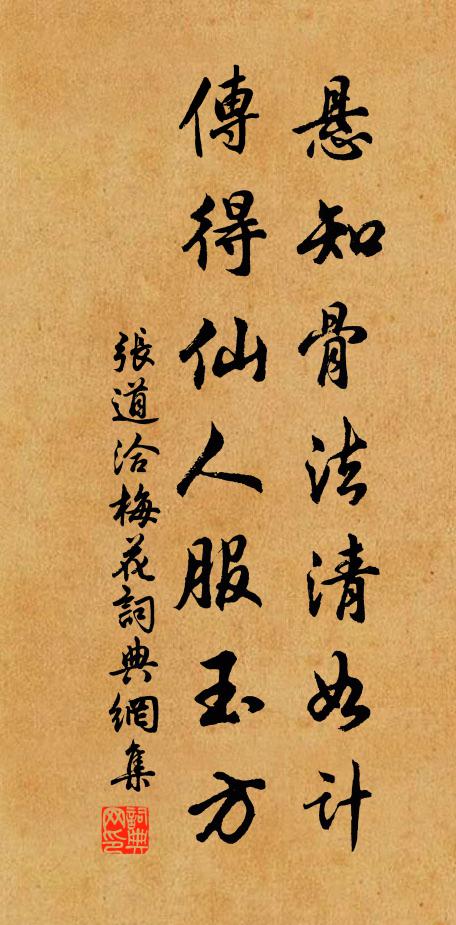 悬知骨法清如計
傳得仙人服玉方
張道洽梅花詞典網集
詞典網印